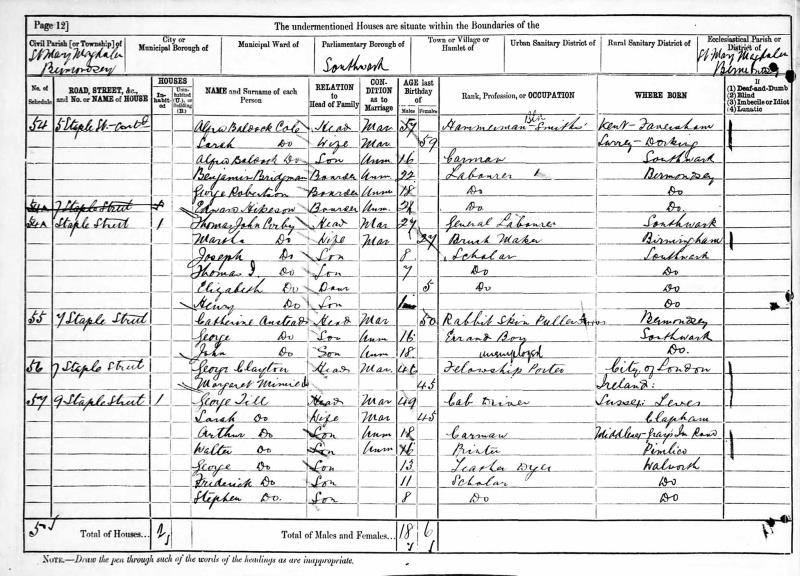 Page 12] The undermentioned Houses are situate within the Boundaries of the
Civil Parish [or Township] of St Mary Magdalen Bermondsey | City or Municipal Borough of | Municipal Ward of | Parliamentary Borough of Southwark | Town or Village or Hamlet of | Urban Sanitary District of | Rural Sanitary District of | Ecclesiastical Parish or District of St Mary Magdalen Bermondsey
No. of Schedule | ROAD, STREET, &c., and No. or NAME of HOUSE | HOUSES Inhabited | Uninhabited (U.), or Building (B.) | NAME and Surname of each Person | RELATION to Head of Family | CONDITION as to Marriage | AGE last Birthday of Males Females | Rank, Profession, or OCCUPATION | WHERE BORN | If (1) Deaf-and-Dumb (2) Blind (3) Imbecile or Idiot (4) Lunatic
54 5 Staple St contd Alfra Baldock Cole Head Mar 57 Hammerman Smiths Kent - Faversham
Sarah Do Wife Mar 59 Surrey - Dorking
Alfra Baldock Do Son Unm 16 Carman Southwark
Benjamin Bridgman Boarder Unm 22 Labourer Bermondsey
George Robertson Boarder Unm 18 Do Do
7 Staple Street 1 Edward Boarder Unm Do Do
54A Staple Street 1 Thomas John Corby Head Mar 27 General Labourer Southwark
Martha Do Wife Mar 27 Brush Maker Birmingham
Joseph Do Son 8 Scholar Southwark
Thomas J. Do Son 7 Do Do
Elizabeth Do Daur 5 Do Do
Henry Do Son Do
55 7 Staple Street Catherine Head Mar 50 Rabbit Skin Puller Bermondsey
George Do Son Unm 16 Errand Boy Southwark
John Do Son Unm 18 unemployed Do.
56 7 Staple Street George Clayton Head Mar Fellowship Porter City of London
Margaret 45 Ireland
57 9 Staple Street 1 George Till Head Mar 49 Cab Driver Sussex Lewes
Sarah Do Wife Mar 45 Clapham
Arthur Do Son Unm 18 Carman Middlesex Grays Inn Road
Walter Do Son Unm 16 Printer Pimlico
George Do Son 13 Leather Dyer Walworth
Frederick Do Son 11 Scholar Do
Stephen Do. Son 8 Do Do
5 Total of Houses... 2 Total of Males and Females... 18 6
NOTE.—Draw the pen through such of the words of the headings as are inappropriate.